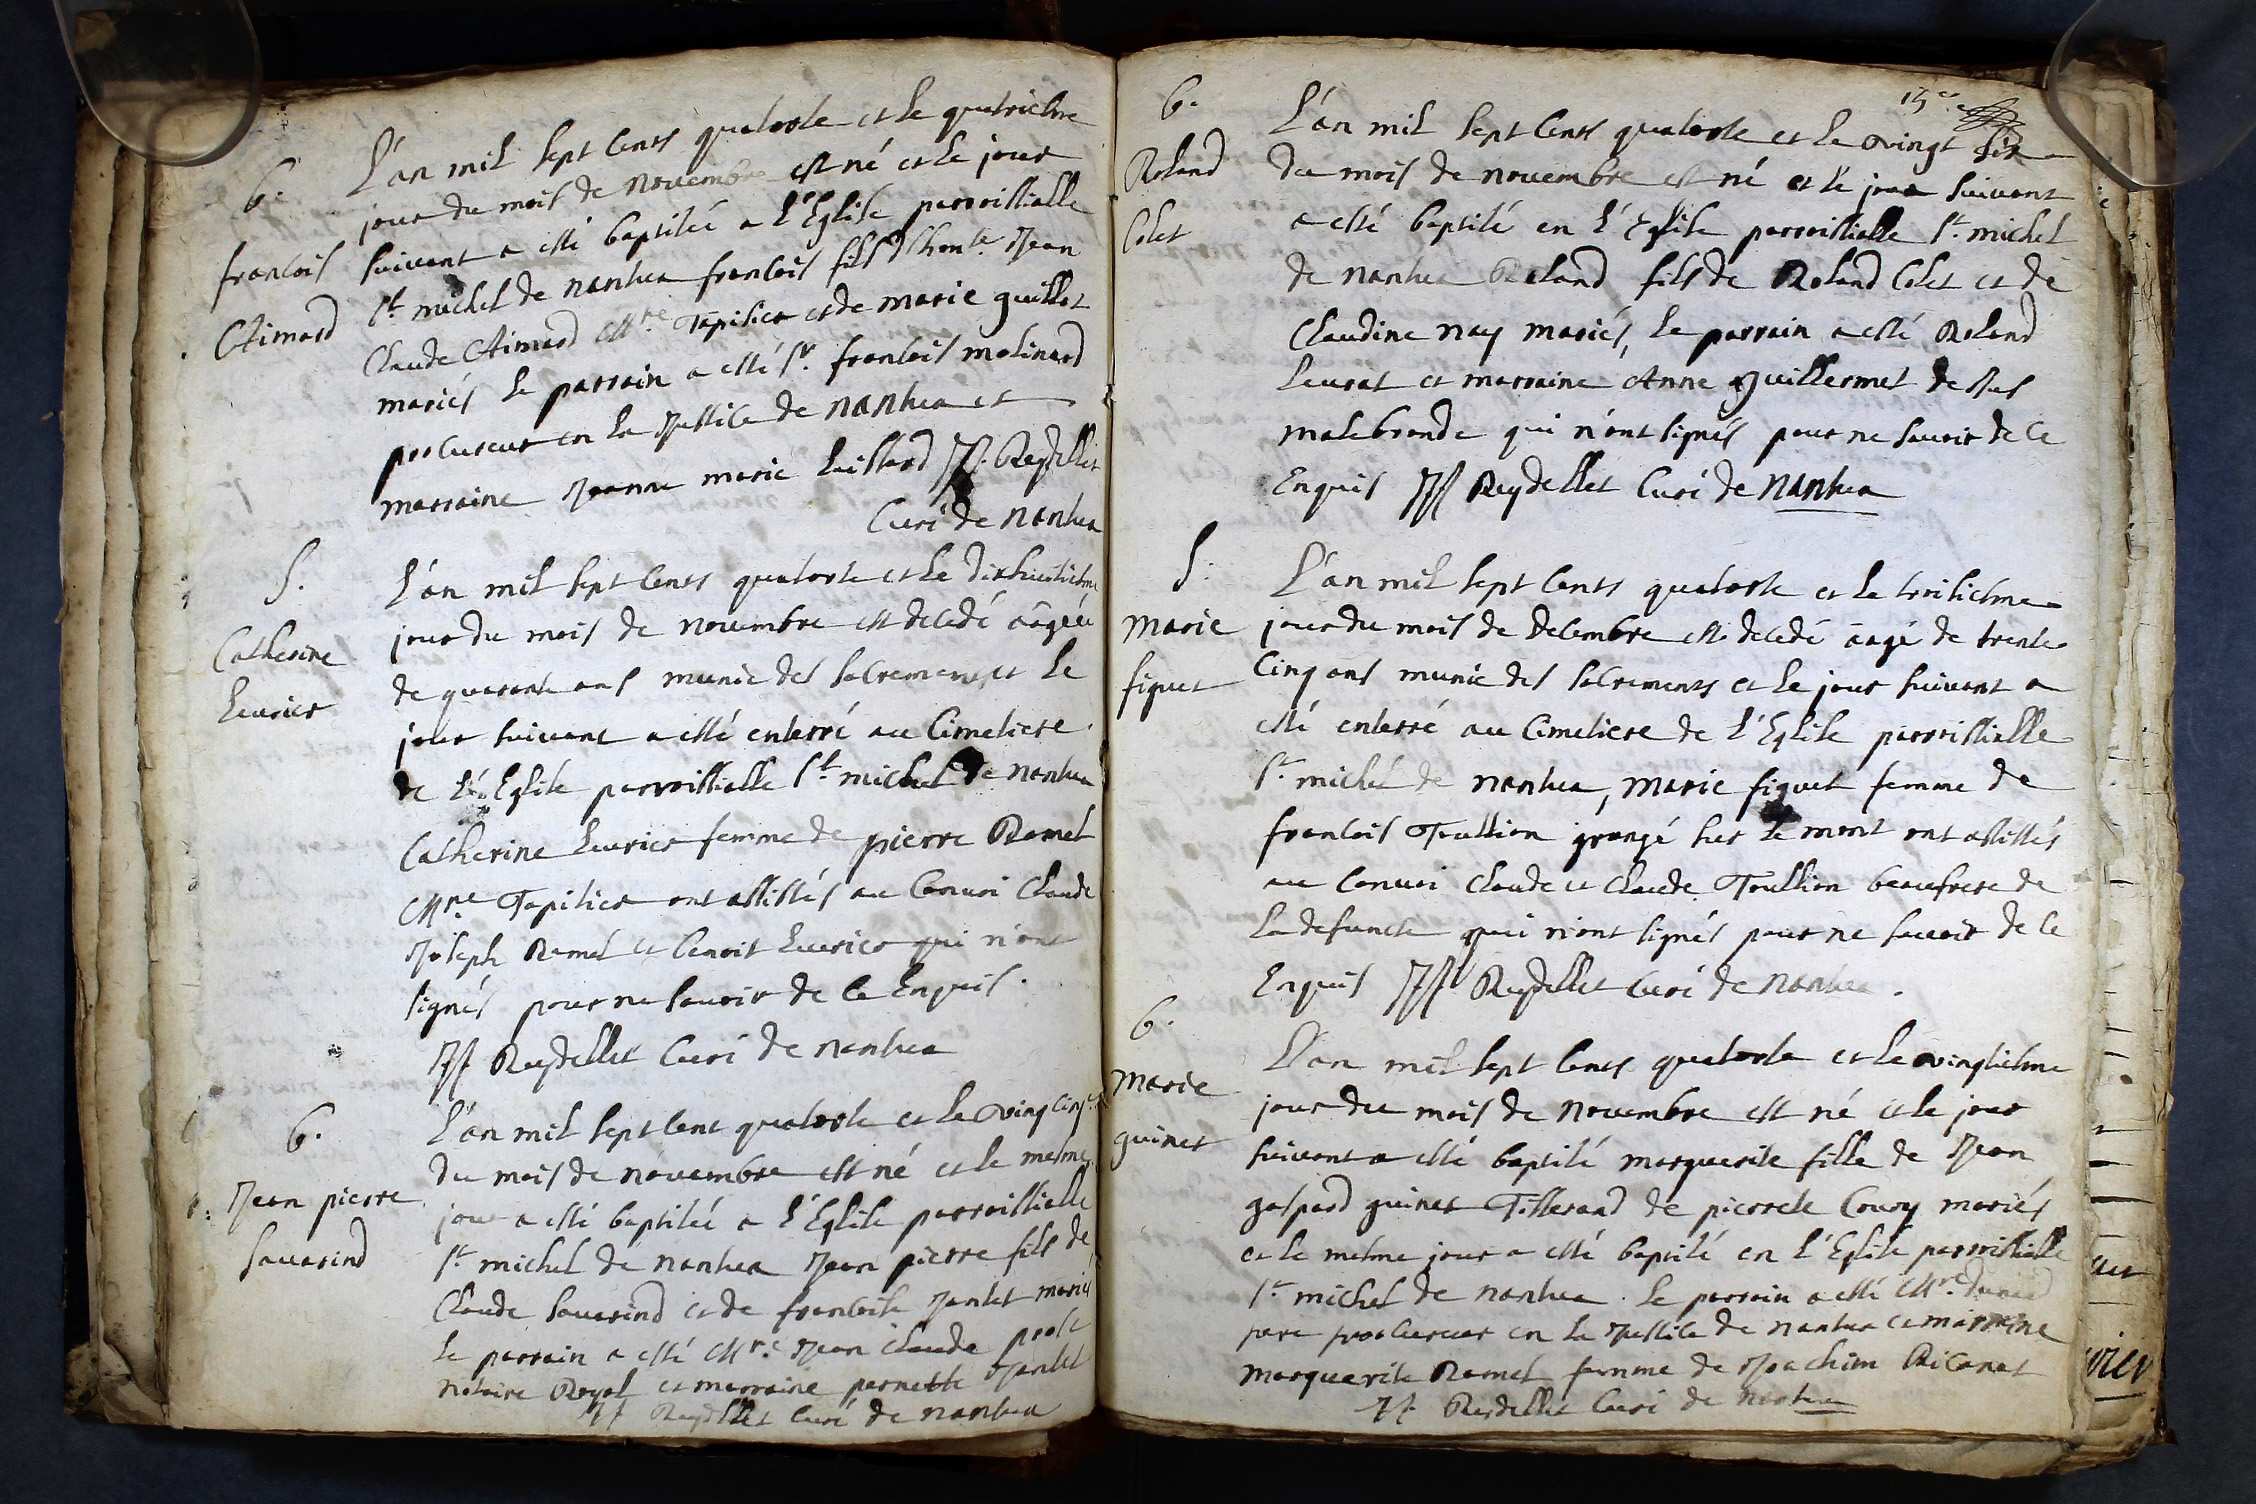 b.
francois
Aimard
L'an mil sept cents quatorse et le quatriesme
jour du mois de novembre est né et le jour
suivant a esté baptiséé a l'Eglise parroissialle
St. michel de nantua francois fils d'hon.te Jean
Claude Aimard M.re Tapisier et de marie guillot
mariés le parrain a esté Sr. francois molinard
procureur en la Justice de nantua et
marraine Jeanne marie
JF. Reydellet
Curé de nantua
S.
Catherine
Leurier
L'an mil sept cents quatorse et le dixhuictiesme
jour du mois de novembre est decedé aagéé
de quarante ans munie des sacrements et le
jour suivant a esté enterré au Cimetiere
de l'Eglise parroissialle St. michel de nantua
Catherine Leurier femme de pierre Ramel
M.re Tapisier ont assistés au Convoi Claude
Joseph Ramel et benoit Leurier qui n'ont
signés pour ne savoir de ce Enquis.
JF Reydellet Curé de nantua
b.
Jean pierre
Savarind
L'an mil sept cent quatorse et le vingt cinq
du mois de novembre est né et le mesme
jour a esté baptiséé a l'Eglise parroissialle
St. michel de nantua Jean pierre fils de
Claude Savarind et de francoise Jantet mariés
le parrain a esté M.re Jean Claude prost
notaire Royal et marraine pernette Jantet
JF. Reydellet Curé de nantua
15e.
b.
Roland
Colet
L'an mil sept cents quatorse et le vingt six
du mois de novembre est né et le jour suivant
a esté baptisé en l'Eglise parroissialle St. michel
de nantua Roland fils de Roland Colet et de
Claudine nay mariés, le parrain a esté Roland
Leurat et marraine Anne Guillermet de Jus
malebronde qui n'ont signés pour ne savoir de ce
Enquis JF Reydellet Curé de nantua
S.
Marie
figuet
L'an mil sept cents quatorse et le troisiesme
jour du mois de decembre est decedé aagé de trente
cinq ans munie des sacrements et le jour suivant a
esté enterré au Cimetiere de l'Eglise parroissialle
St. michel de nantua, marie figuet femme de
francois Toullion grangé sur le mont ont assistés
au Convoi Claude et Claude Toullion beaufrere de
la defuncte qui n'ont signés pour ne savoir de ce
Enquis JF Reydellet Curé de nantua.
b.
Marie
guinet
L'an mil sept cents quatorse et le vingtiesme
jour du mois de novembre est né et le jour
suivant a esté baptisé marguerite fille de Jean
gaspard guinet Tisserand de pierrete Coury mariés
et le mesme jour a esté baptisé en l'Eglise parroissialle
St. michel de nantua. le parrain a esté M.re
pere procureur en la Justice de nantua et marraine
marguerite Ramel femme de Joachim Ricanet
JF. Reydellet Curé de nantua